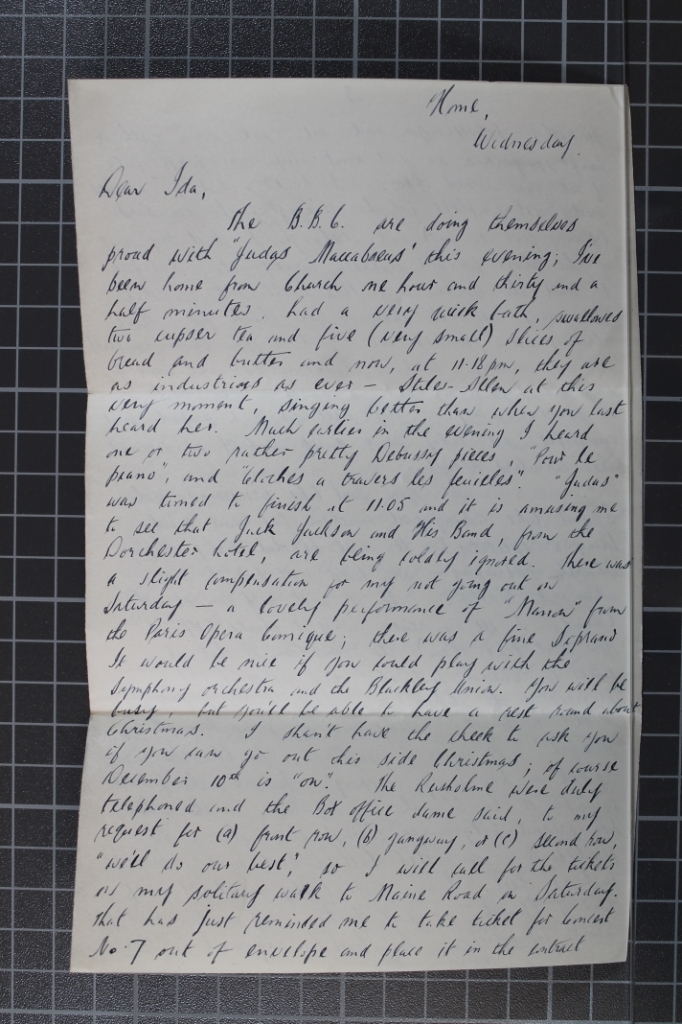 Home,
Wednesday.
Dear Ida,
The B.B.C. are doing themselves
proud with "Judas Maccabaeus" this evening; I've
been home from Church one hour and thirty and a
half minutes, had a very quick bath, swallowed
two cups of tea and five (very small) slices of
bread and butter and now, at 11.18 pm, they are
as industrious as ever - Stiles-Allen at this
very moment, singing better than when you last
heard her. Much earlier in the evening I heard
one or two rather pretty Debussy pieces, "Pour le
piano", and "Cloches a travers les feuilles". "Judas"
was timed to finish at 11.05 and it is amusing me
to see that Jack Jackson and His Band, from the
Dorchester hotel, are being coldly ignored. There was
a slight compensation for my not going out on
Saturday - a lovely performance of "Manon" from
the Paris Opera Comique; there was a fine Soprano
It would be nice if you could play with the
Symphony orchestra and the Blackley Union. You will be
busy but you'll be able to have a rest round about
Christmas. I shan't have the cheek to ask you
if you can go out this side Christmas; of course
December 10th is "on". The Rusholme were duly
telephoned and the Box office dame said, to my
request for (a) front row, (b) gangway, or (c) second row,
"we'll do our best", so I will call for the tickets
on my solitary walk to Maine Road on Saturday.
That has just reminded me to take ticket for Concert
No. 7 out of envelope and place it in the